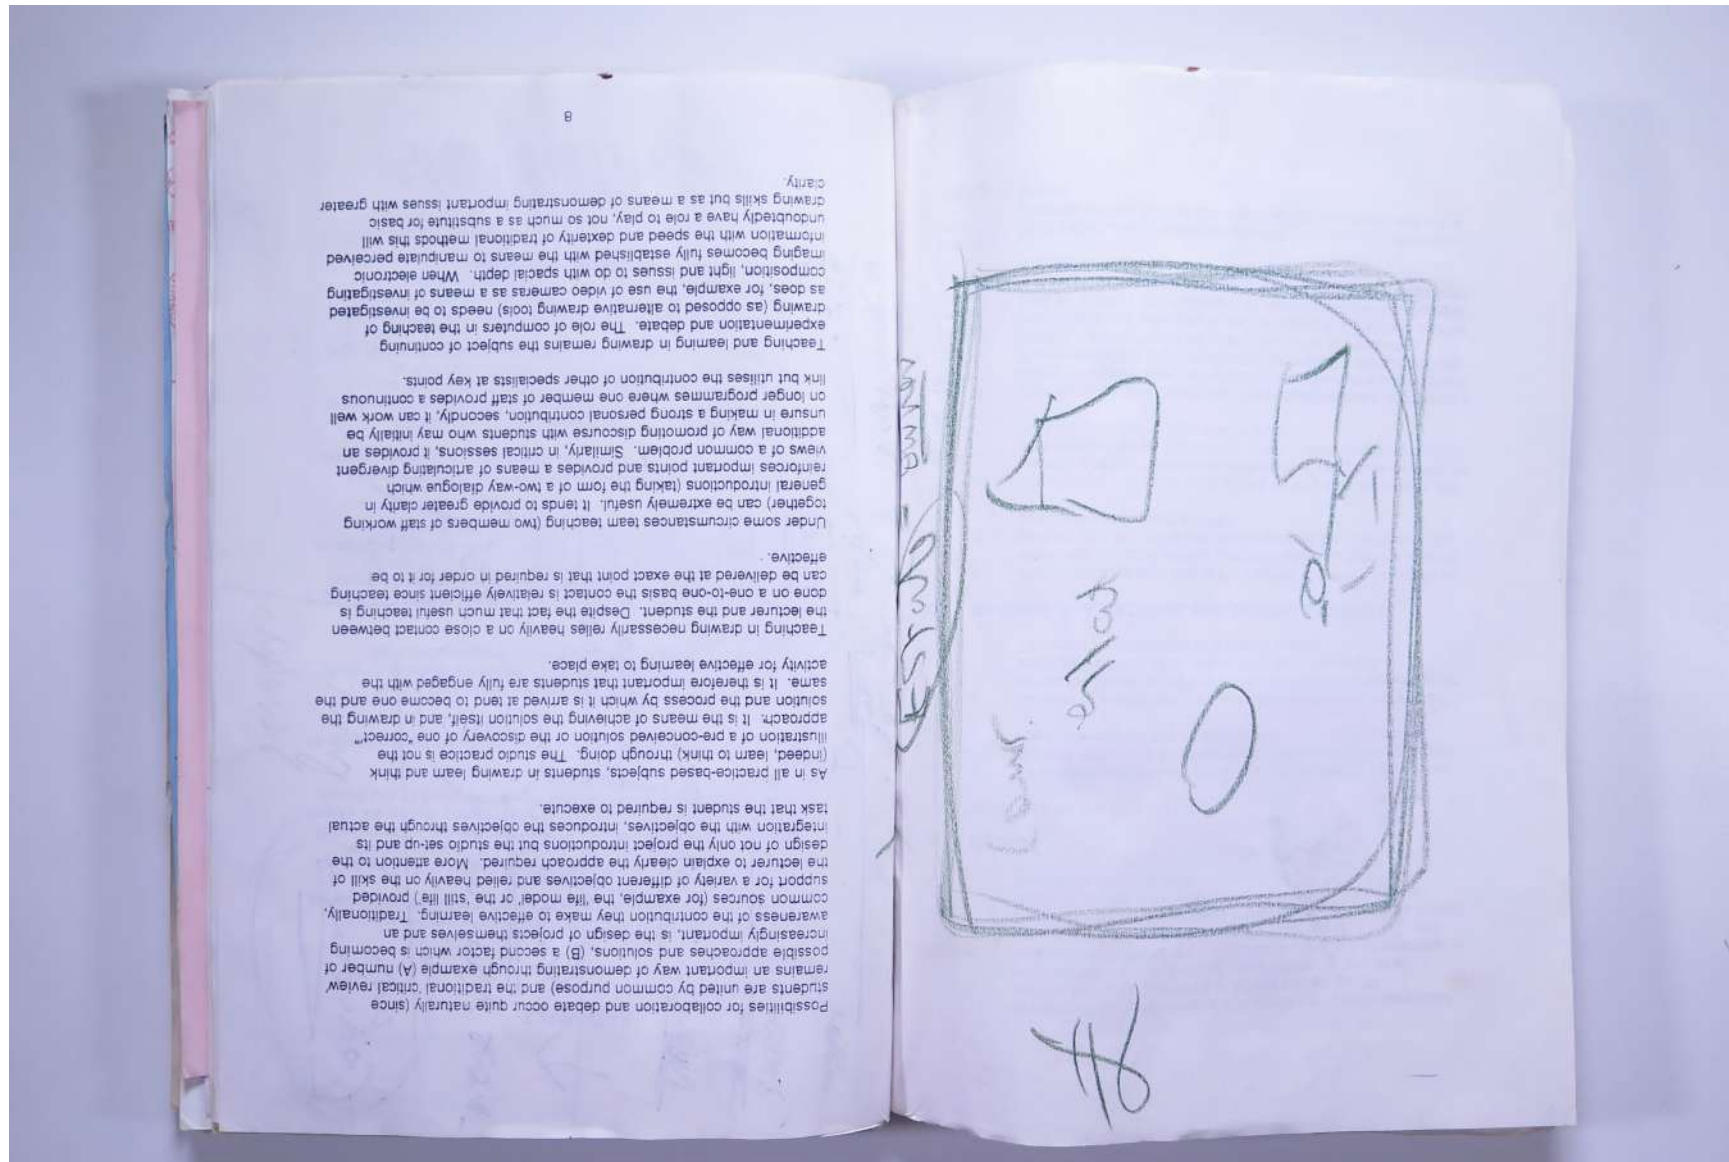 Possibilities for collaboration and debate occur quite naturally (since
students are united by common purpose) and the traditional 'critical review'
remains an important way of demonstrating through example (A) number of
possible approaches and solutions, (B) a second factor which is becoming
increasingly important, is the design of projects themselves and an
awareness of the contribution they make to effective learning. Traditionally,
common sources (for example, the 'life model' or the 'still life') provided
support for a variety of different objectives and relied heavily on the skill of
the lecturer to explain clearly the approach required. More attention to the
design of not only the project introductions but the studio set-up and its
integration with the objectives, introduces the objectives through the actual
task that the student is required to execute.
As in all practice-based subjects, students in drawing learn and think
(indeed, learn to think) through doing. The studio practice is not the
illustration of a pre-conceived solution or the discovery of one "correct"
approach. It is the means of achieving the solution itself, and in drawing the
solution and the process by which it is arrived at tend to become one and the
same. It is therefore important that students are fully engaged with the
activity for effective learning to take place.
Teaching in drawing necessarily relies heavily on a close contact between
the lecturer and the student. Despite the fact that much useful teaching is
done on a one-to-one basis the contact is relatively efficient since teaching
can be delivered at the exact point that is required in order for it to be
effective.
Under some circumstances team teaching (two members of staff working
together) can be extremely useful. It tends to provide greater clarity in
general introductions (taking the form of a two-way dialogue which
reinforces important points and provides a means of articulating divergent
views of a common problem. Similarly, in critical sessions, it provides an
additional way of promoting discourse with students who may initially be
unsure in making a strong personal contribution, secondly, it can work well
on longer programmes where one member of staff provides a continuous
link but utilises the contribution of other specialists at key points.
Teaching and learning in drawing remains the subject of continuing
experimentation and debate. The role of computers in the teaching of
drawing (as opposed to alternative drawing tools) needs to be investigated
as does, for example, the use of video cameras as a means of investigating
composition, light and issues to do with spacial depth. When electronic
imaging becomes fully established with the means to manipulate perceived
information with the speed and dexterity of traditional methods this will
undoubtedly have a role to play, not so much as a substitute for basic
drawing skills but as a means of demonstrating important issues with greater
clarity.
8